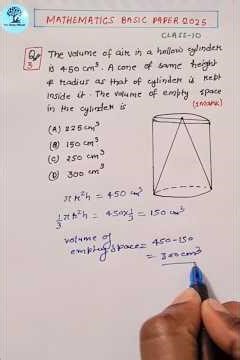 MATHEMATICS BASIC PAPER 2025
CLASS-10
Q
3
The volume of air in a hollow cylinder
is 450 cm³. A cone of same height
& radius as that of cylinder is kept
inside it. The volume of empty space
in the cylinder is (1 MARK)
(A) 225 cm³
(B) 150 cm³
(C) 250 cm³
(D) 300 cm³
πr²h = 450 cm³
1/3 πr²h = 450×1/3 = 150 cm³
volume of
empty space = 450-150
= 300 cm³